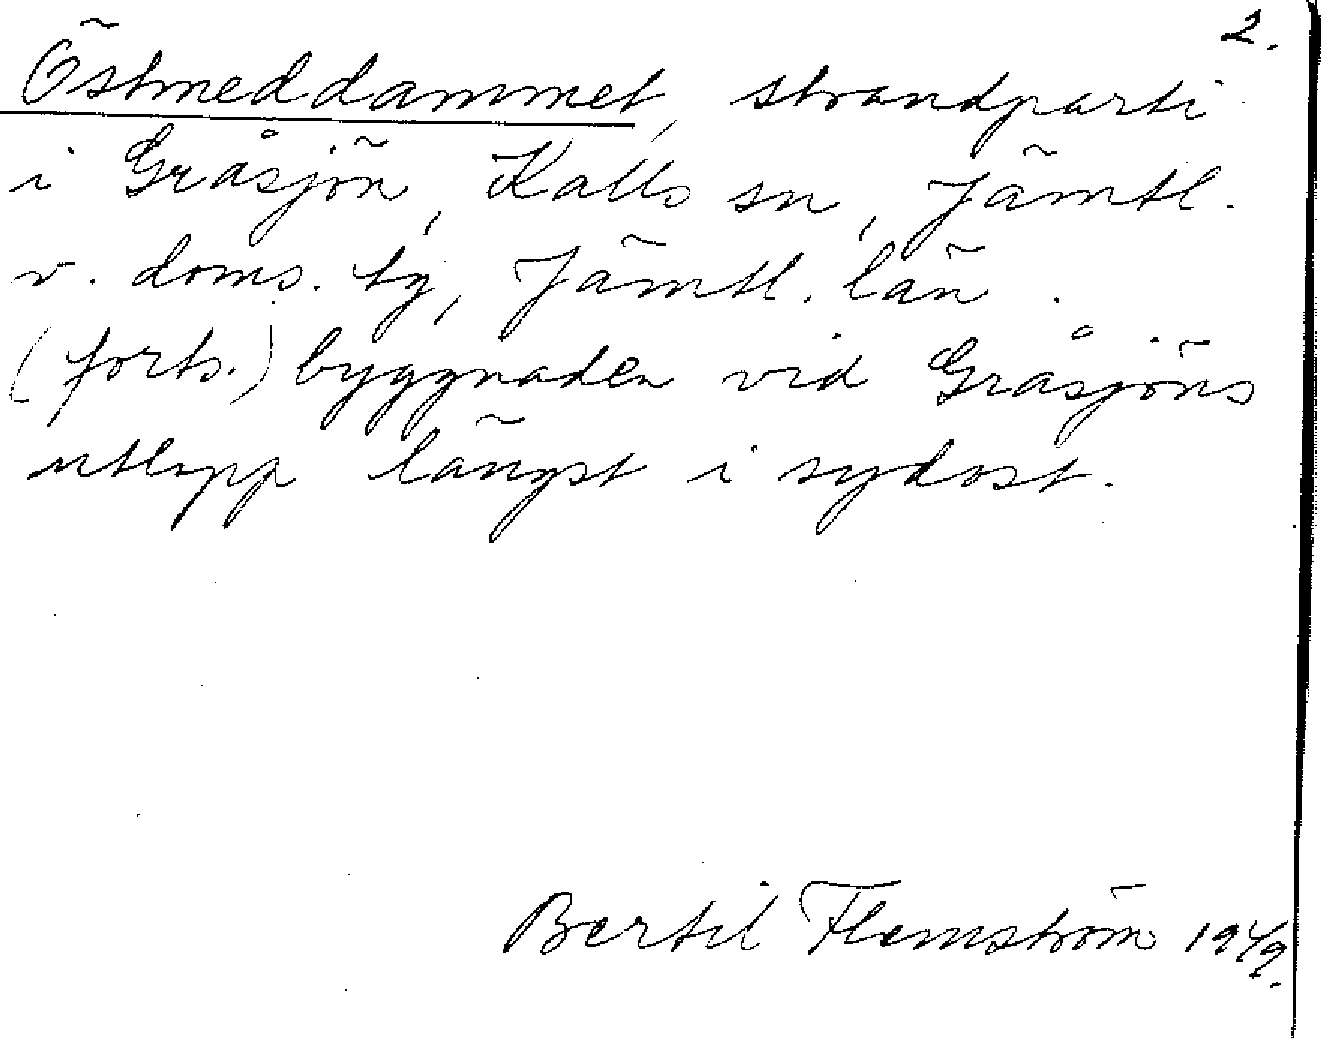 2.
Östmeddammet, strandparti
i Gråsjön, Kalls sn, Jämtl.
v. doms. by, Jämtl. län.
(forts.) byggnaden vid Gråsjöns
utlopp längst i sydost.
Bertil Flemström 1949.